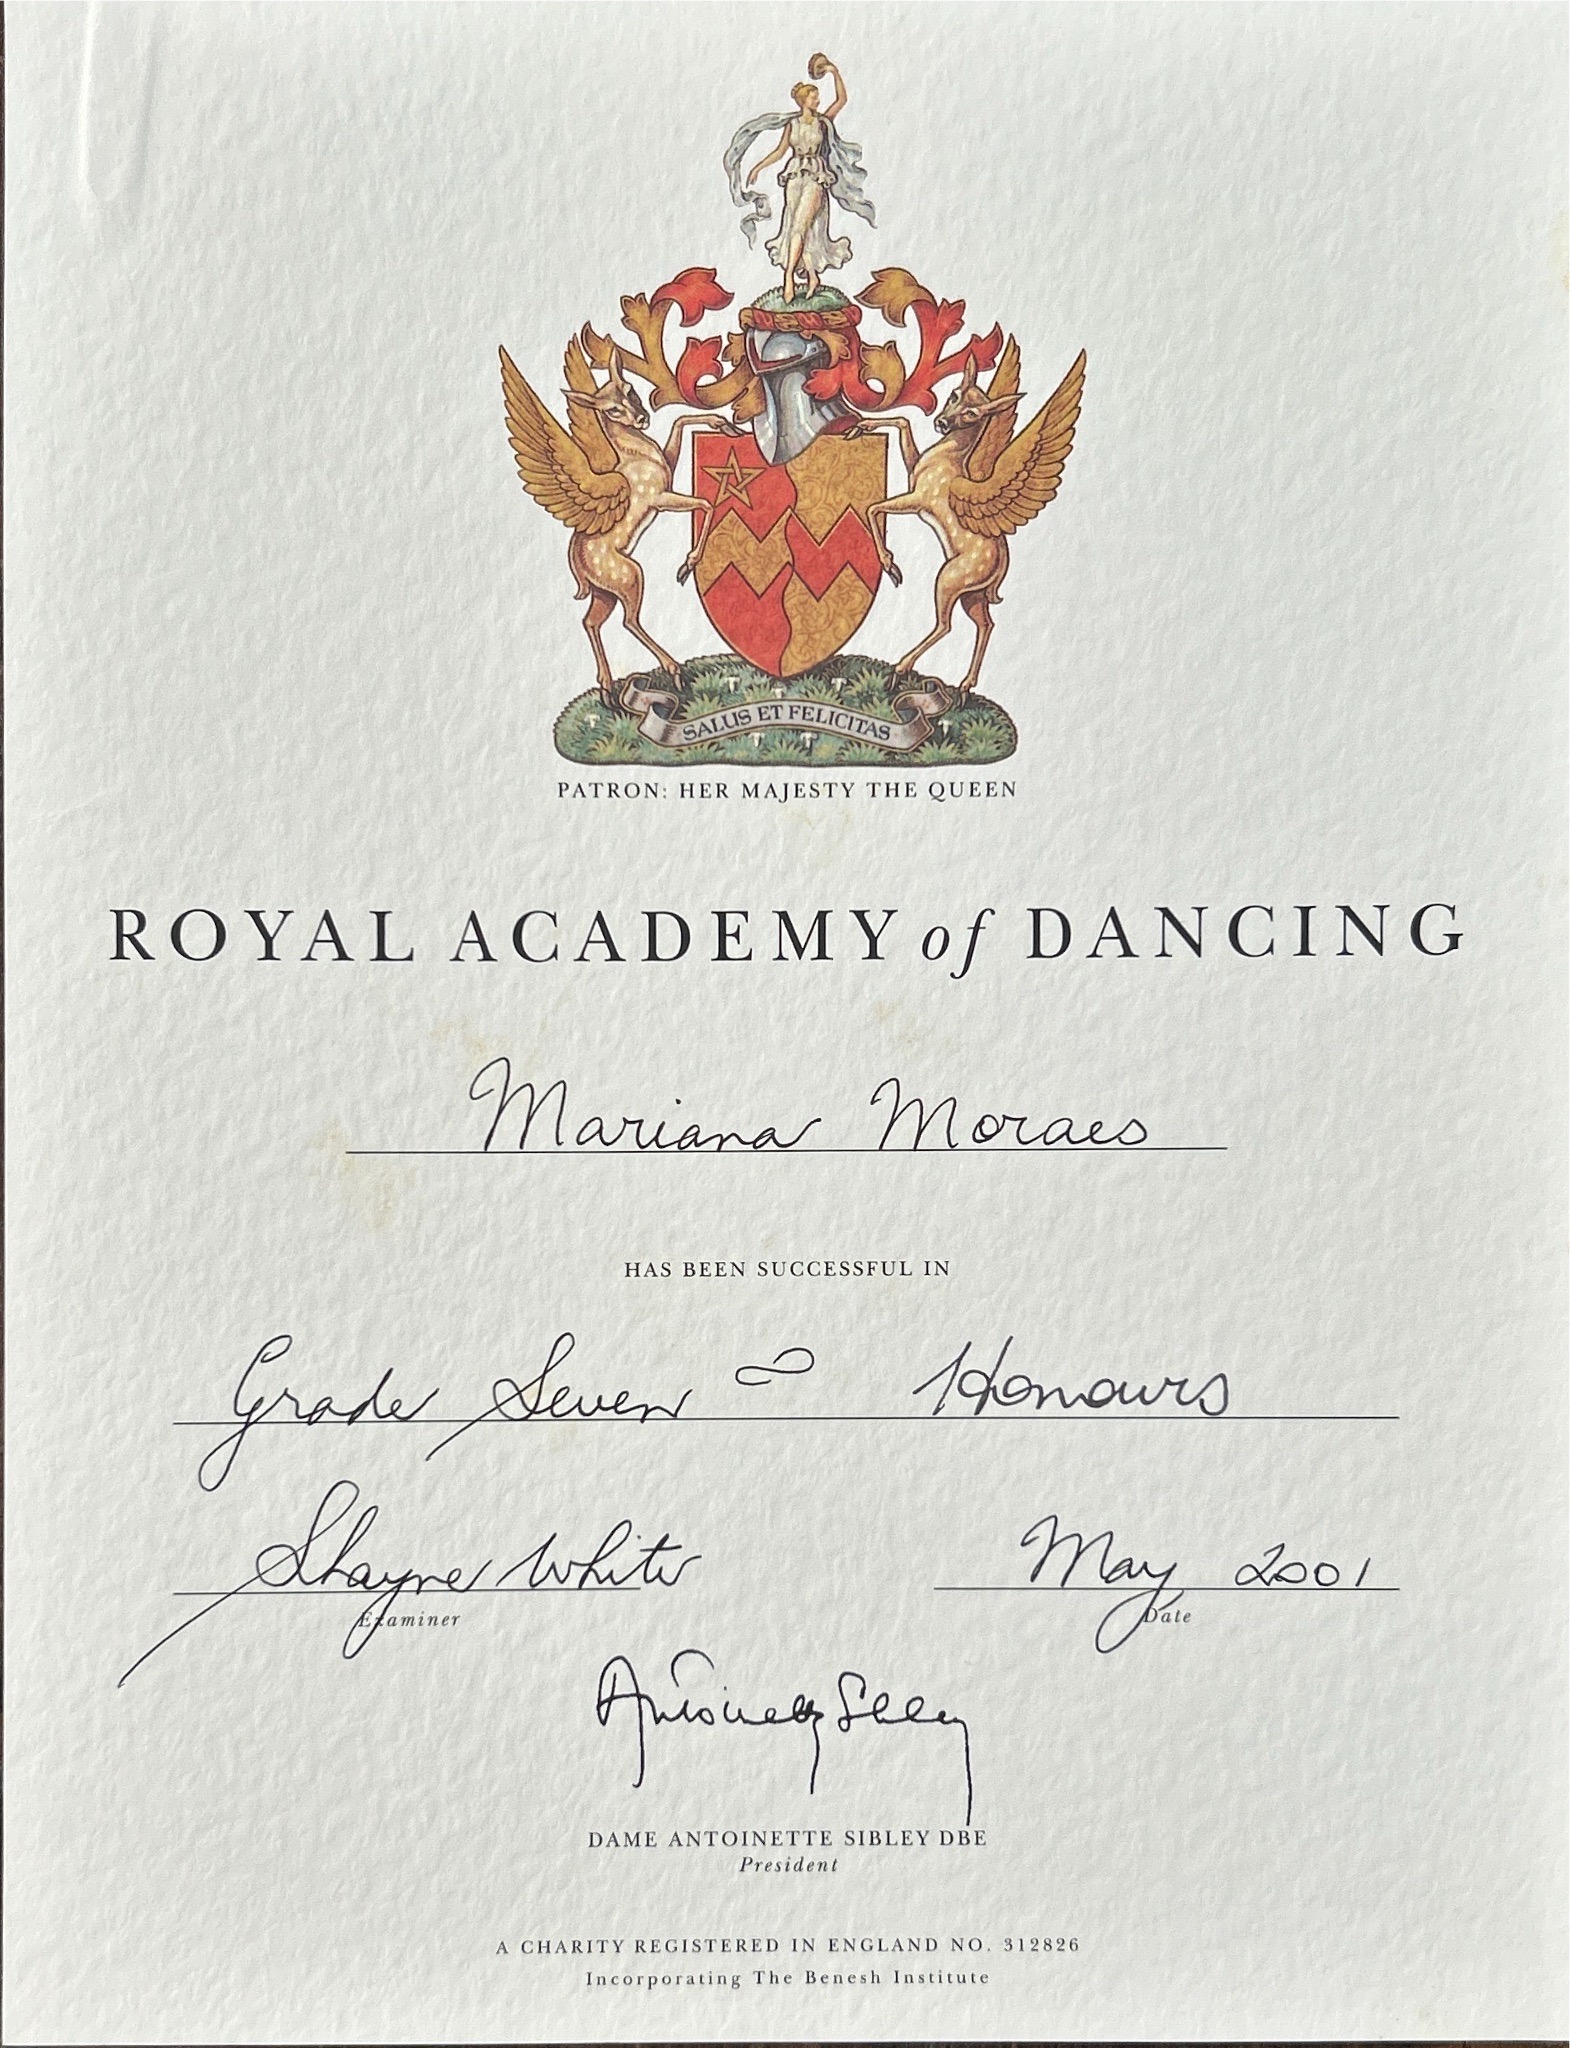 SALUS ET FELICITAS
PATRON: HER MAJESTY THE QUEEN
ROYAL ACADEMY of DANCING
Mariana Moraes
HAS BEEN SUCCESSFUL IN
Grade Seven Honours
Shayne White May 2001
Examiner Date
Antoinette Sibley
DAME ANTOINETTE SIBLEY DBE
President
A CHARITY REGISTERED IN ENGLAND NO. 312826
Incorporating The Benesh Institute